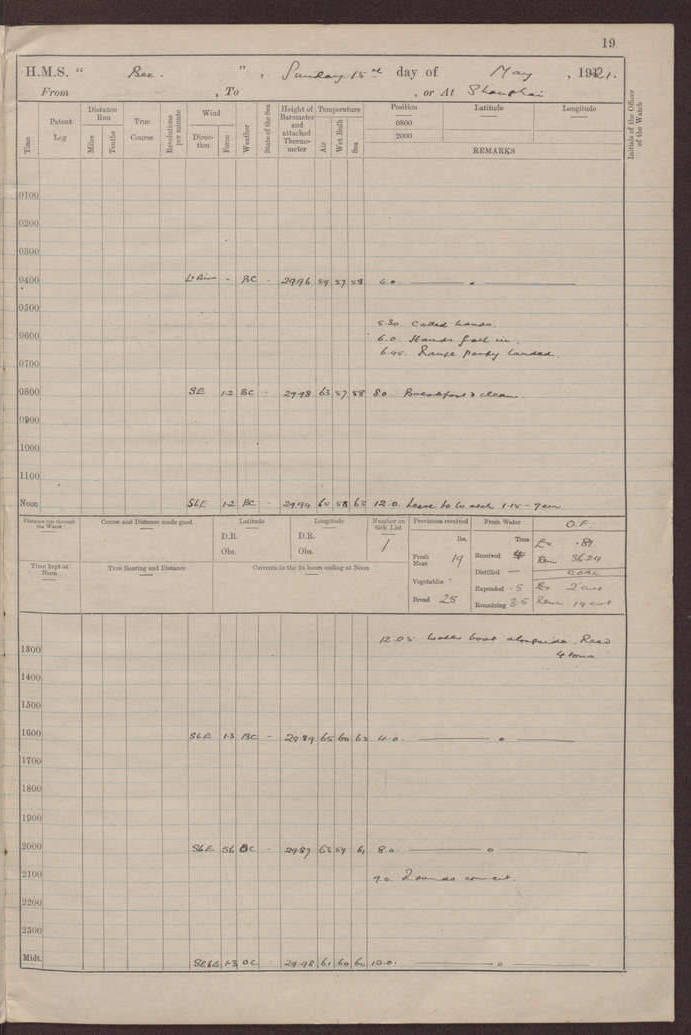 19
H.M.S. " Bee. ", Sunday 15th day of May, 1921.
From , To , or At Shanghai
Time
Patent Log
Distance Run
Miles
Tenths
True Course
Revolutions per minute
Wind
Direction
Force
Weather
State of the Sea
Height of Barometer and attached Thermometer
Temperature
Air
Wet Bulb
Sea
Position Latitude Longitude
0800
2000
REMARKS
Initials of the Officer of the Watch
0100
0200
0300
0400 Lt Air - BC - 29.96 59 57 58 4.0
0500
5.30 Called hands.
0600 6.0 Hands fall in.
6.45 Range party landed.
0700
0800 SE 1-2 BC - 29.98 63 57 58 8.0 Breakfast & clean
0900
1000
1100
Noon SbE 1-2 BC - 29.94 65 58 62 12.0 Leave to 1.15 - 7 am
Distance run through the Water
Course and Distance made good
Latitude
D.R.
Obs.
Longitude
D.R.
Obs.
Number on Sick List
1
Provisions received
lbs.
Fresh Meat 19
Vegetables -
Bread 25
Fresh Water
Tons
Received 4
Distilled —
Expended .5
Remaining 35
O.F.
Ex .89
Rem 3624
COAL
Ex 2 cwt
Rem 19 cwt
Time kept at Noon
True Bearing and Distance
Currents in the 24 hours ending at Noon
12.05 Water boat alongside. Recd
4 tons
1300
1400
1500
1600 SbE 1-3 BC - 29.89 65 60 62 4.0
1700
1800
1900
2000 SbE 5-6 BC - 29.87 62 59 61 8.0
2100 9.0 Rounds correct.
2200
2300
Midt. SEbE 1-3 OC 29.98 61 60 60 12.0.